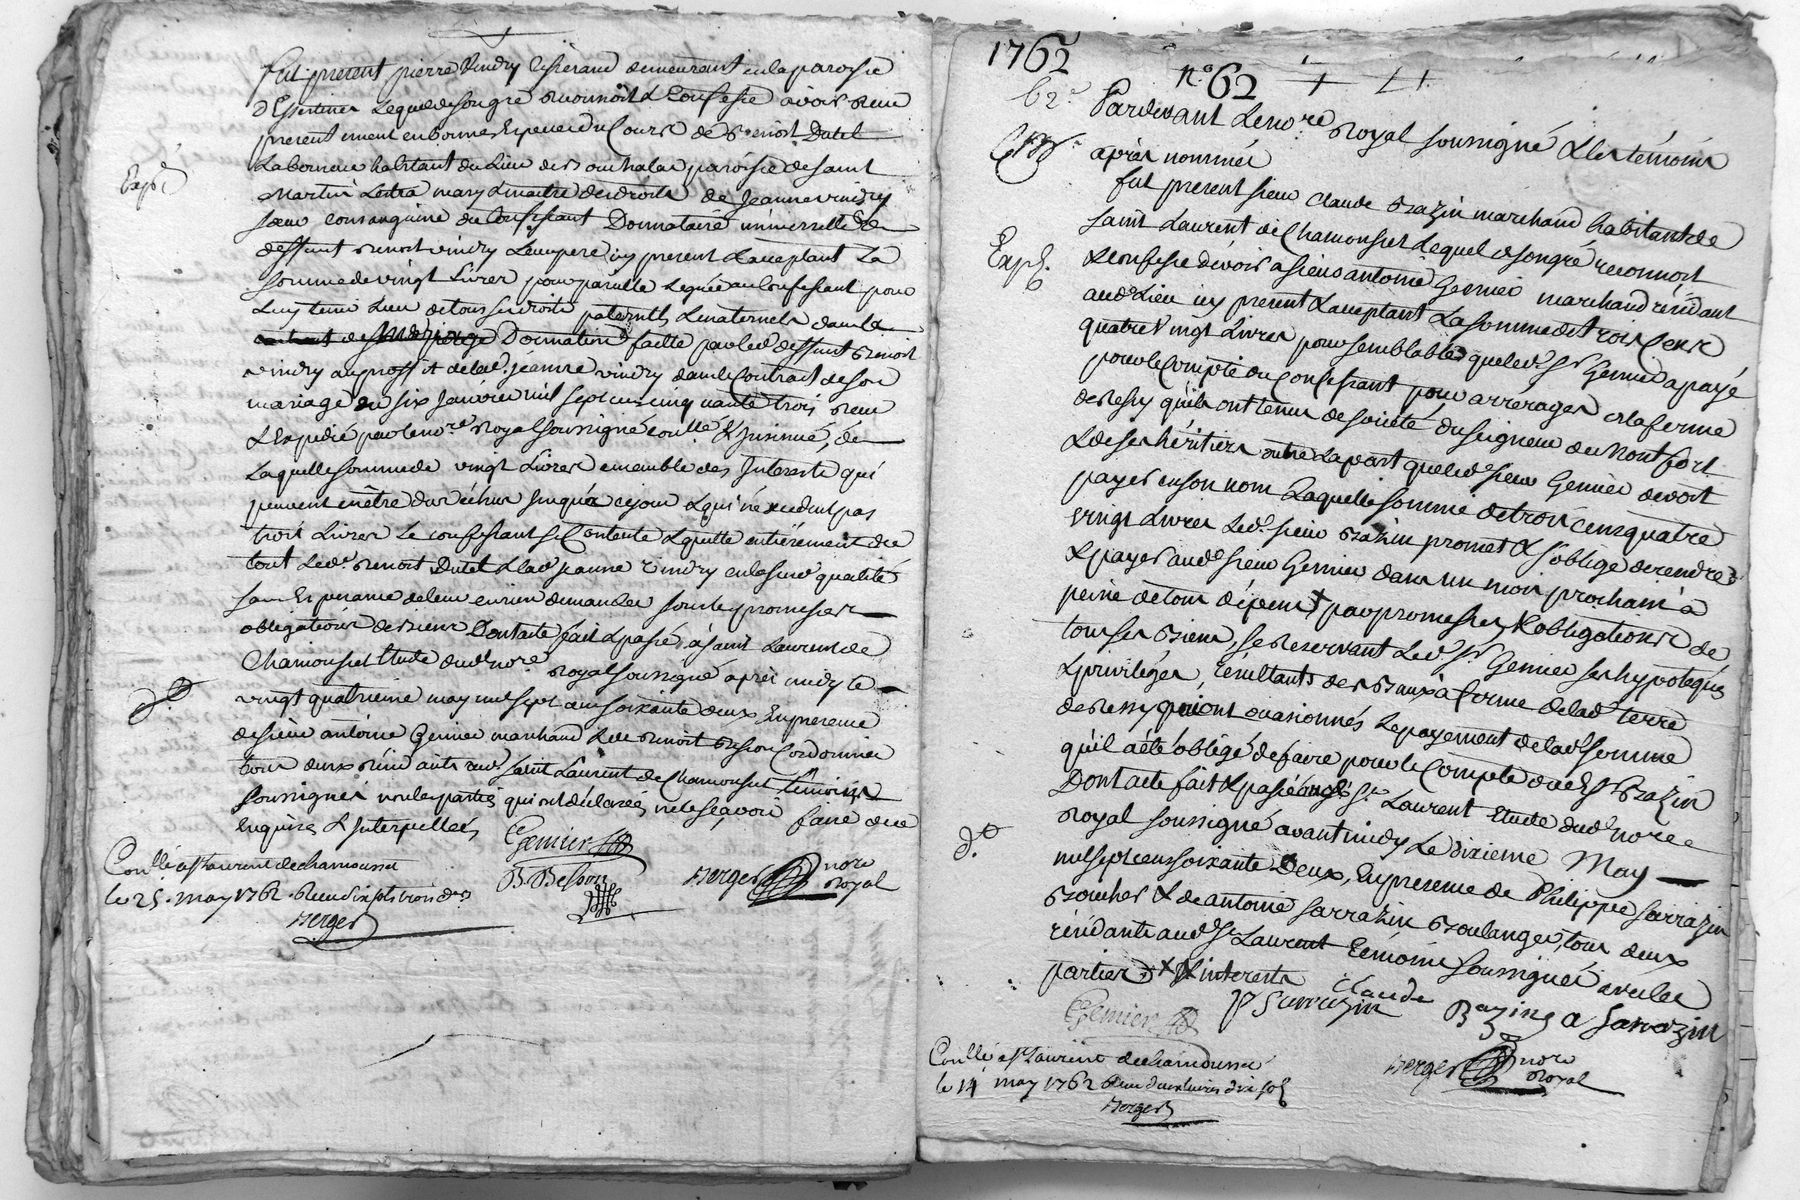 fut present pierre Vindry tisserand demeurant en la paroisse
d'Essertines Lequel de son gré reconnoit & Confesse avoir reçu
presentement en bonnes Especes du Cours de Benoist Dutel
Laboureur habitant du Lieu de paroisse de saint
Expé
Martin Lestra mary & maitre des droits de Jeanne vindry
sœur consanguine du Confessant Donnataire universelle de
deffunt benoit vindry Leur pere icy present & acceptant La
somme de vingt Livres pour pareille Leguée au Confessant pour
Luy tenir Lieu de tous ses droits paternels & maternels dans la
Donnation faitte par led deffunt Benoit
vindry au proffit de lad. jeanne vindry dans le Contrat de son
mariage du six Janvier mil sept cens cinquante trois reçu
& Expedié par le nore Royal soussigné coullé & Insinué, de
Laquelle somme de vingt Livres ensemble des Interests qui
peuvent en être dus & échus jusqu'a ce jour & qui n'éxcedent pas
trois Livres Le confessant se Contente & quitte entièrement de
tout Led. benoit Dutel & lad jeanne vindry en la susd qualité
sans Esperance de leur en rien demander sous les promesses
obligations de biens Dont acte fait & passé à saint Laurent de
Chamousset Etude dud nore Royal soussigné après midy le
d.t
vingt quatrieme may mil sept cens soixante deux En presence
de sieur antoine Gemier marchand & de benoit besson Cordonnier
tous deux résidants aud saint Laurent de Chamousset témoins
soussignés non les parties qui ont déclarés ne le sçavoir faire de ce
Enquises & Interpellées
Gemier
B. Besson
Berger nore Royal
Coullé a st Laurent de chamousset
le 25. may 1762. Reçu dix sols trois drs
Berger
1762
n.o 62
62e
Pardevant Le nore Royal soussigné & les témoins
après nommés
fut present sieur Claude Bazin marchand habitant de
saint Laurent de Chamousset Lequel de son gré reconnoit
Expé.
& Confesse devoir a sieur antoine Gemier marchand résidant
aud. Lieu icy present & acceptant La somme de trois Cens
quatre Vingt Livres pour semblable que led. Sr Gemier a payé
pour le Compte du Confessant pour arrérages de la ferme
de Ressy qu'ils ont tenus de societé du seigneur de Montfort
& de ses héritiers outre La part que led. sieur Gemier devoit
payer en son nom Laquelle somme de trois cens quatre
vingt Livres Led. sieur Bazin promet & s'oblige de rendre
& payer aud sieur Gemier dans un mois prochain à
peine de tous dépens x par promesses, & obligations de
tous ses biens, se Reservant Led. Sr Gemier ses hypoteques
& privileges, résultants des Baux à ferme de lad terre
de Ressy qui ont ocasionnés Le payement de lad. somme
qu'il a été obligé de faire pour le Compte dud Sr Bazin
Dont acte fait & passé St Laurent Etude dud. nore
Royal soussigné avant midy Le dixieme May
d.t
mil sept cens soixante Deux, En presence de Philippe sarrazin
Boucher & de antoine sarrazin Boulanger, tous deux
résidants aud. St Laurent témoins soussignés avec les
parties x & interests
Gemier
P Sarrazin
Claude Bazin
a Sarazin
Coullé a st Laurent de chamousset
le 14 may 1762 Reçu deux livres dix sols
Berger
Berger nore Royal